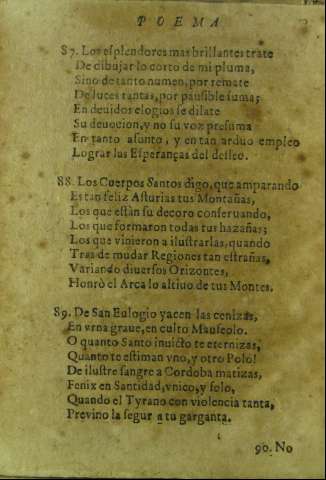 POEMA
87. Los esplendores mas brillantes trate
De dibujar lo corto de mi pluma,
Sino de tanto numen, por remate
De luces tantas, por pausible suma;
En deuidos elogios se dilate
Su deuocion, y no su voz presuma
En tanto asunto, y en tan arduo empleo
Lograr lus Esperanças del desseo.
88. Los Cuerpos Santos digo, que amparando
Estan feliz Asturias tus Montañas,
Los que estàn su decoro conseruando,
Los que formaron todas tus hazañas;
Los que vinieron a ilustrarlas, quando
Tras de mudar Regiones tan estrañas,
Variando diuersos Orizontes,
Honrò el Arca lo altiuo de tus Montes.
89. De San Eulogio yacen las cenizas,
En vrna graue, en culto Mauseolo.
O quanto Santo inuicto te eternizas,
Quanto te estiman vno, y otro Polo!
De ilustre sangre a Cordoba matizas,
Fenix en Santidad, vnico, y solo,
Quando el Tyrano con violencia tanta,
Preuino la segur a tu garganta.
90. No